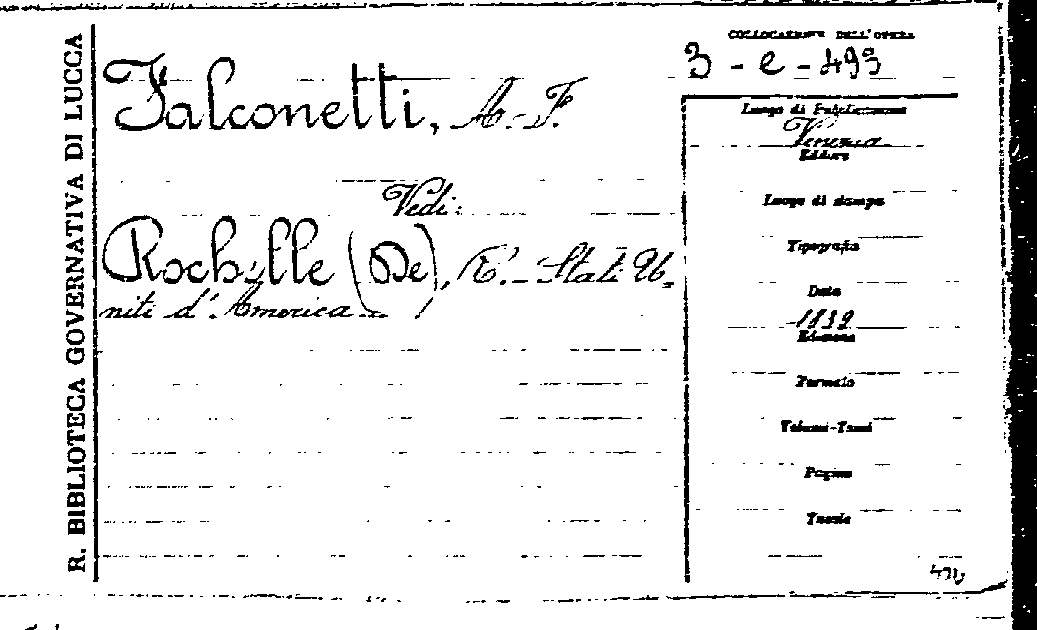 R. BIBLIOTECA GOVERNATIVA DI LUCCA
COLLOCAZIONE DELL'OPERA
3 - e - 493
Falconetti, A.-F.
Vedi:
Rochelle (De), E.- Stati U-
niti d'America
Luogo di Pubblicazione
Venezia
Editore
Luogo di stampa
Tipografia
Data
1839
Edizione
Formato
Volumi-Tomi
Pagine
Tavole